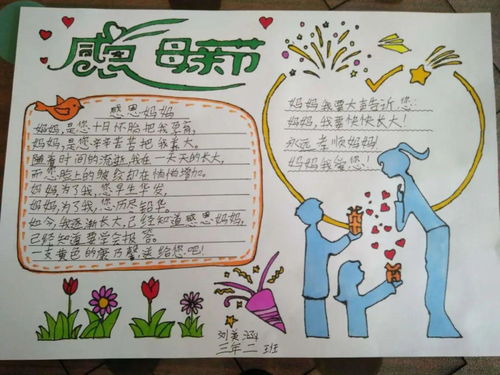 感恩 母亲节
感恩妈妈
妈妈,是您十月怀胎把我孕育。
妈妈,是您辛辛苦苦把我养大。
随着时间的流逝,我在一天天的长大,
而您脸上的皱纹却在悄悄增加。
妈妈为了我,您早生华发,
妈妈,为了我,您历尽铅华。
如今,我逐渐长大,已经知道感恩妈妈,
已经知道要学会报答。
一支黄色的康乃馨送给您吧!
妈妈我要大声告诉您:
妈妈,我要快快长大!
永远孝顺妈妈!
妈妈我爱您!
刘美涵
三年二班